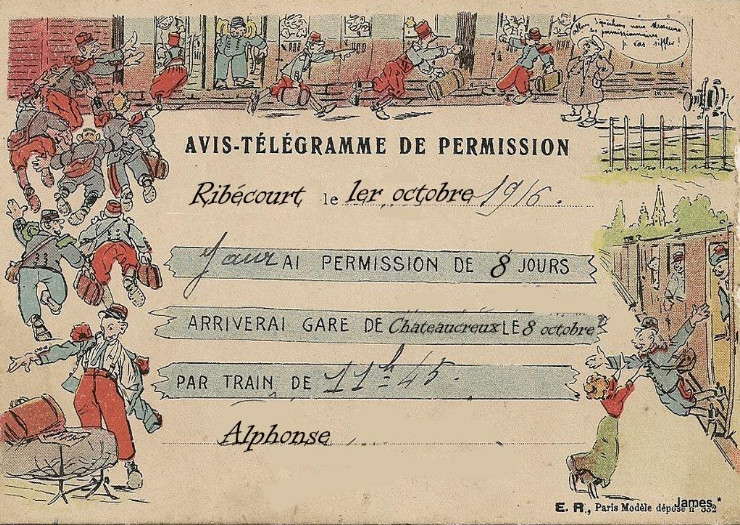 Allons dépêchons nous Messieurs
les permissionnaires
p. vas siffler!
AVIS-TÉLÉGRAMME DE PERMISSION
Ribécourt le 1er octobre 1916.
J'aurAI PERMISSION DE 8 JOURS
ARRIVERAI GARE DE Chateaucreux LE 8 octobre
PAR TRAIN DE 11h-45.
Alphonse
E. R., Paris Modèle déposé n° 332
James*